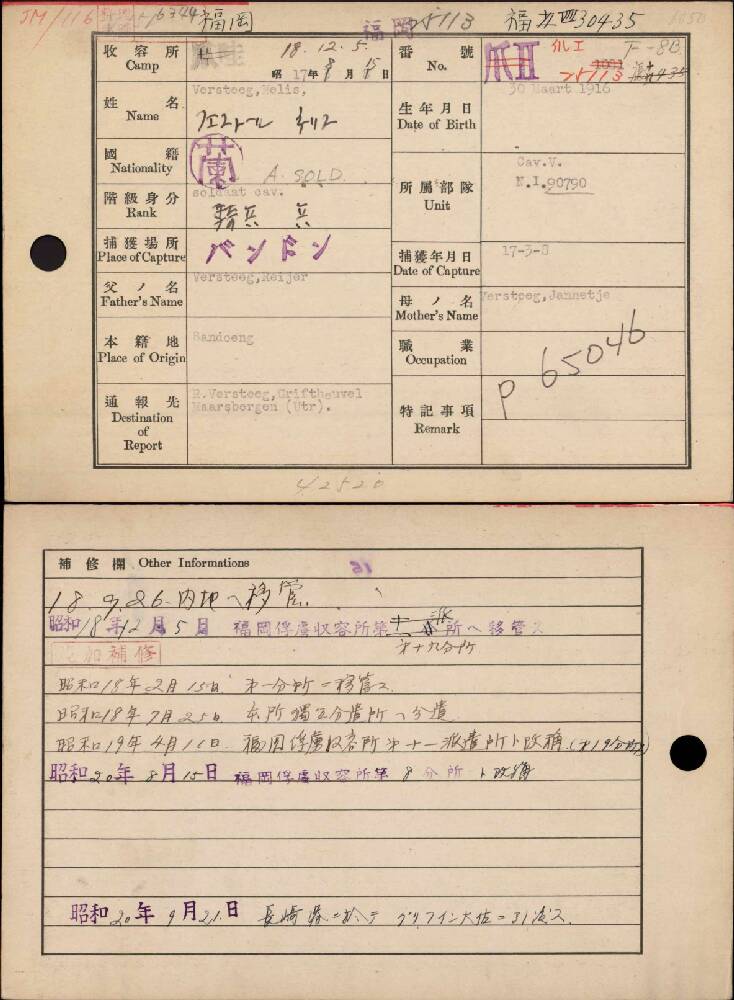 JM/116 6344 福岡 福岡 25113 福 30435 1650
収容所 Camp 爪哇 18.12.5.
昭 17年 8月 15日
番號 No. 爪II 25113 F-8B
姓名 Name Versteeg,Melis,
生年月日 Date of Birth 30 Maart 1916
國籍 Nationality 蘭 A. SOLD.
階級身分 Rank soldaat cav.
騎兵 兵
所属部隊 Unit Cav.V.
N.I.90790
捕獲場所 Place of Capture バンドン
捕獲年月日 Date of Capture 17-3-8
父ノ名 Father's Name Versteeg,Meijer
母ノ名 Mother's Name Versteeg,Jannetje
本籍地 Place of Origin Bandoeng
職業 Occupation
P 65046
通報先 Destination of Report R.Versteeg,Griftheuvel
Maarsbergen (Utr).
特記事項 Remark
42520
補修欄 Other Informations 16
18.9.26.内地へ移管.
昭和18年12月5日 福岡俘虜収容所第十一派所へ移管ス
第十九分所
追加補修
昭和18年2月15日 第一分所ニ移管ス
昭和18年7月25日 本所獨立分遣所へ分遣
昭和19年4月1日 福岡俘虜収容所第十一派遣所ト改稱(第19分所)
昭和20年8月15日 福岡俘虜収容所第8分所ト改稱
昭和20年9月21日 長崎港ニ於テ グリフイン大佐ニ引渡ス